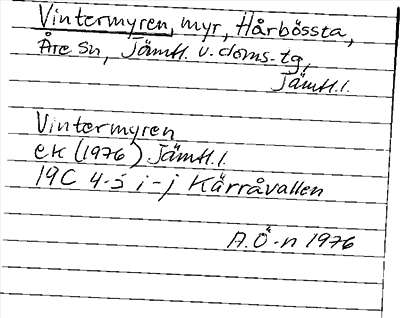 Vintermyren, myr, Hårbössta,
Åre sn, Jämtl. v. doms-tg,
Jämtl.l.
Vintermyren
ek (1976) Jämtl.l.
19C 4-5 i-j Kärråvallen
A.Ö-n 1976